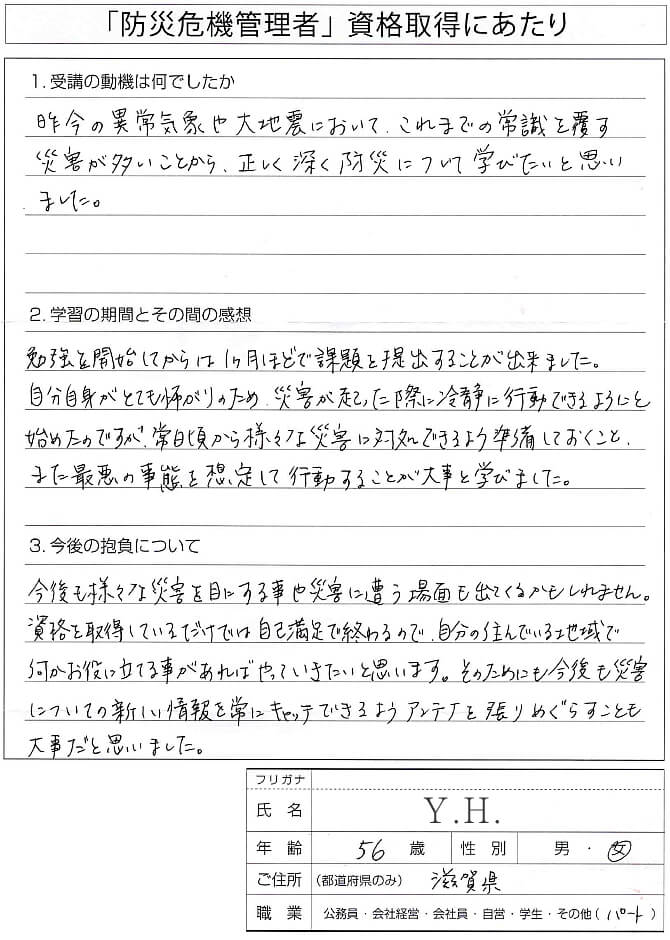 「防災危機管理者」資格取得にあたり
1. 受講の動機は何でしたか
昨今の異常気象や大地震において、これまでの常識を覆す
災害が多いことから、正しく深く防災について学びたいと思い
ました。
2. 学習の期間とその間の感想
勉強を開始してからは1ヶ月ほどで課題を提出することが出来ました。
自分自身がとても怖がりのため、災害が起こった際に冷静に行動できるようにと
始めたのですが、常日頃から様々な災害に対処できるよう準備しておくこと、
また最悪の事態を想定して行動することが大事と学びました。
3. 今後の抱負について
今後も様々な災害を目にする事や災害に遭う場面も出てくるかもしれません。
資格を取得しているだけでは自己満足で終わるので、自分の住んでいる地域で
何かお役に立てる事があればやっていきたいと思います。そのためにも今後も災害
についての新しい情報を常にキャッチできるようアンテナを張りめぐらすことも
大事だと思いました。
フリガナ
氏名 Y.H.
年齢 56 歳 性別 男・女
ご住所 (都道府県のみ) 滋賀県
職業 公務員・会社経営・会社員・自営・学生・その他( パート )